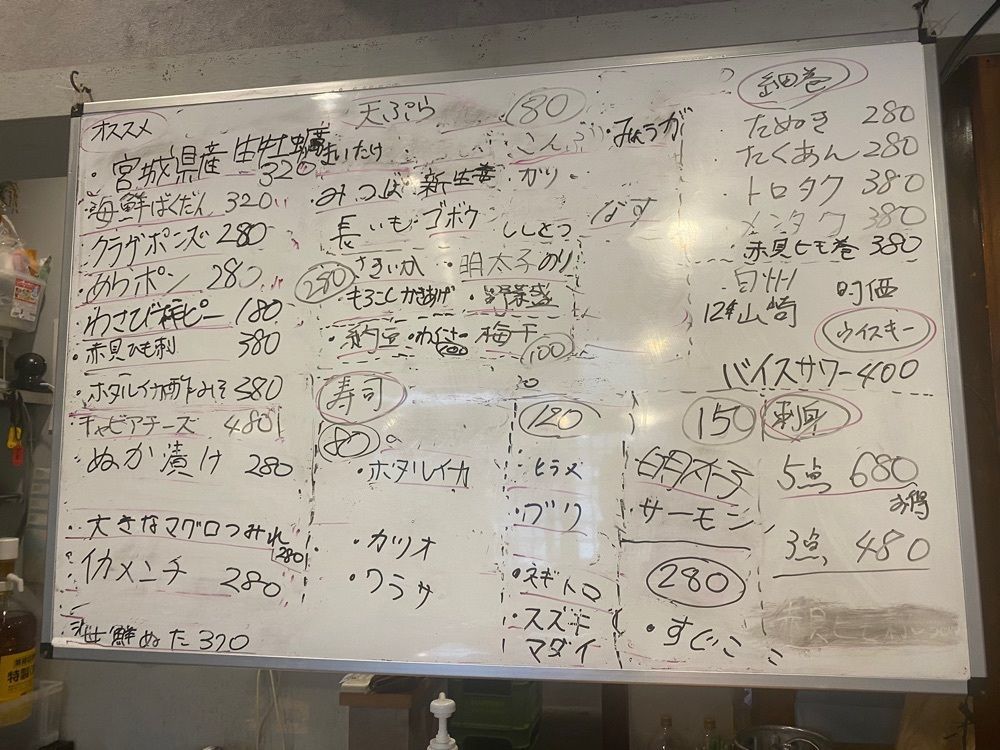 オススメ
・宮城県産 生牡蠣 320
・海鮮ばくだん 320
・クラゲポンズ 280
・めかポン 280
・わさび柿ピー 180
・赤貝ひも刺 380
・ホタルイカ酢みそ 380
・チャビアチーズ 480
・ぬか漬け 280
・大きなマグロつみれ 280
・イカメンチ 280
海鮮ぬた 320
天ぷら 80
まいたけ ・こんぶ ・みょうが
・みつば 新生姜 ガリ
長いも ・ゴボウ ししとう なす
280 さきいか ・明太子のり
・もろこしかきあげ ・野菜盛
・納豆 ・わさび 100 ・梅干 100
寿司
80
・ホタルイカ
・カツオ
・ワラサ
120
・ヒラメ
・ブリ
・ネギトロ
・スズキ
マダイ
150
明太子
サーモン
280
・すじこ
細巻
たぬき 280
たくあん 280
トロタク 380
メンタク 380
赤貝ヒモ巻 380
白州
12年山崎 時価
ウイスキー
バイスサワー 400
刺身
5点 680
お得
3点 480
特製